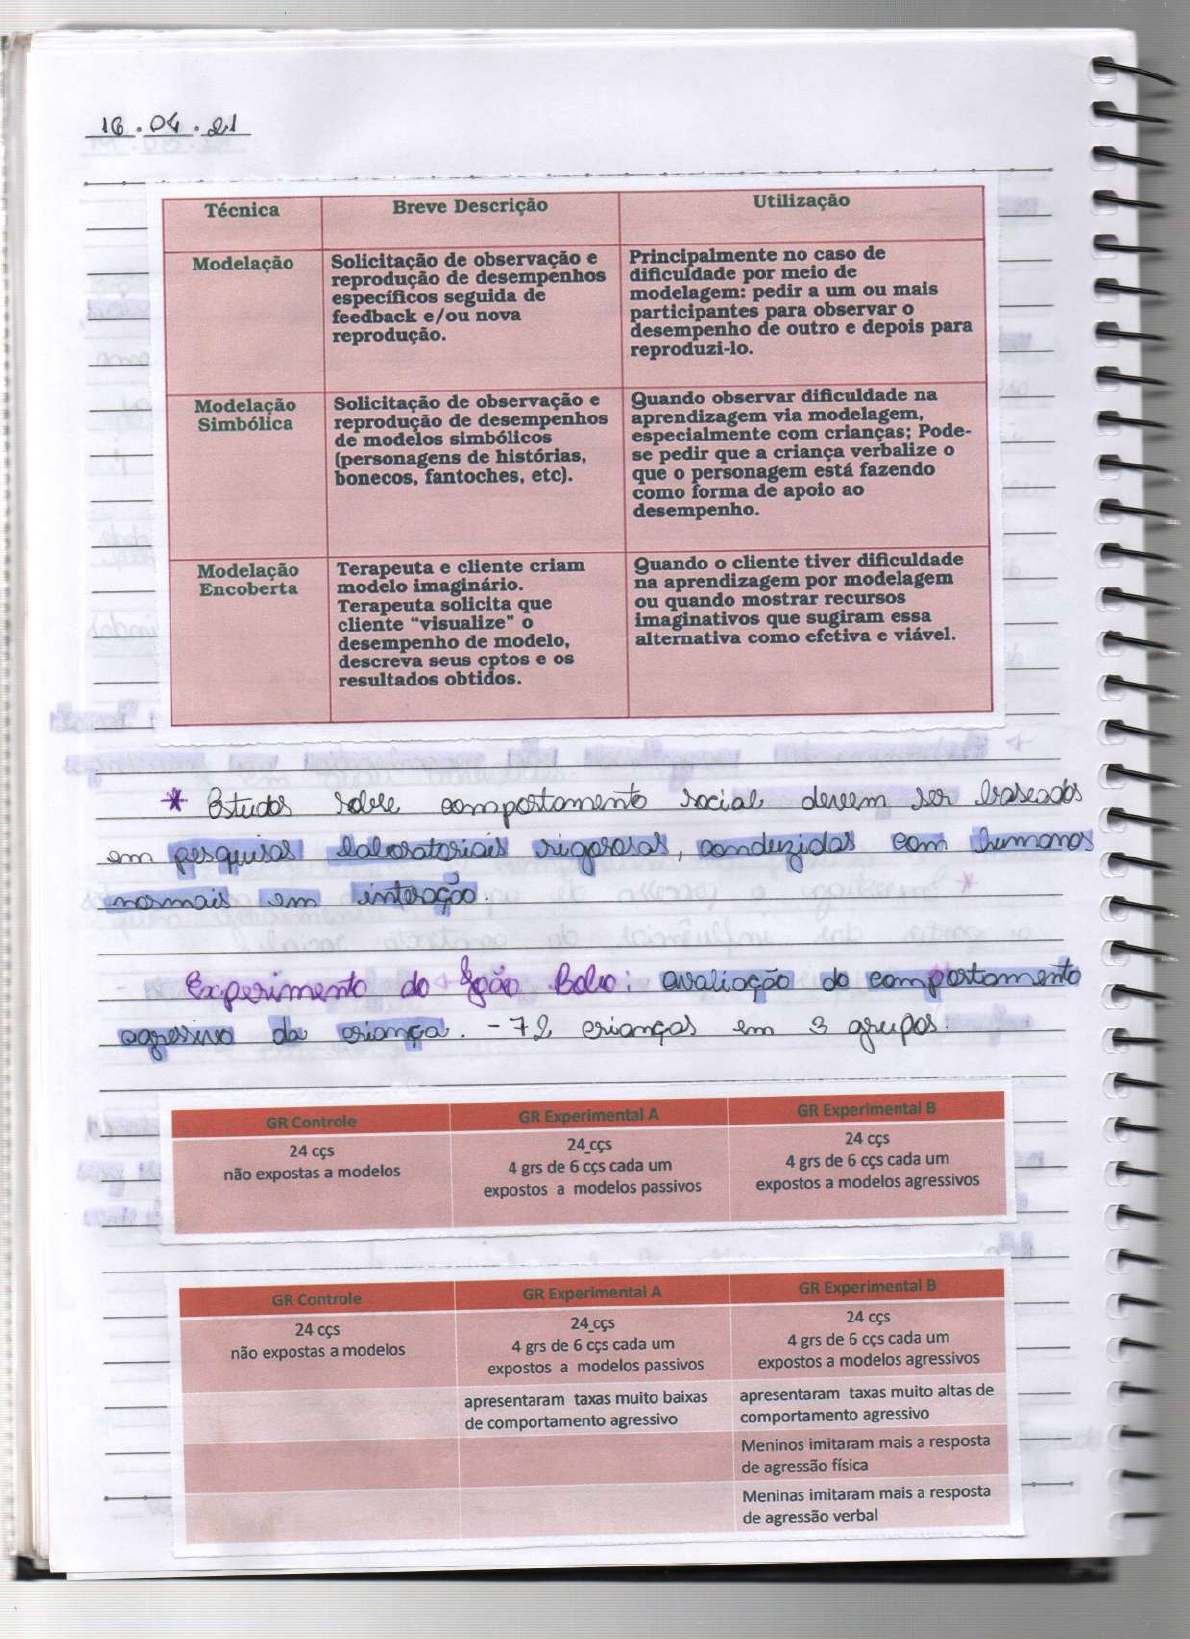 16.04.21
Técnica
Breve Descrição
Utilização
Modelação
Solicitação de observação e
reprodução de desempenhos
específicos seguida de
feedback e/ou nova
reprodução.
Principalmente no caso de
dificuldade por meio de
modelagem: pedir a um ou mais
participantes para observar o
desempenho de outro e depois para
reproduzi-lo.
Modelação
Simbólica
Solicitação de observação e
reprodução de desempenhos
de modelos simbólicos
(personagens de histórias,
bonecos, fantoches, etc).
Quando observar dificuldade na
aprendizagem via modelagem,
especialmente com crianças; Pode-
se pedir que a criança verbalize o
que o personagem está fazendo
como forma de apoio ao
desempenho.
Modelação
Encoberta
Terapeuta e cliente criam
modelo imaginário.
Terapeuta solicita que
cliente "visualize" o
desempenho de modelo,
descreva seus cptos e os
resultados obtidos.
Quando o cliente tiver dificuldade
na aprendizagem por modelagem
ou quando mostrar recursos
imaginativos que sugiram essa
alternativa como efetiva e viável.
* Estudos sobre comportamento social devem ser baseados
em pesquisas laboratoriais rigorosas, conduzidas com humanos
normais em interação.
Experimento do João Bobo: avaliação do comportamento
agressivo da criança. - 72 crianças em 3 grupos.
GR Controle
GR Experimental A
GR Experimental B
24 cçs
não expostas a modelos
24 cçs
4 grs de 6 cçs cada um
expostos a modelos passivos
24 cçs
4 grs de 6 cçs cada um
expostos a modelos agressivos
GR Controle
GR Experimental A
GR Experimental B
24 cçs
não expostas a modelos
24 cçs
4 grs de 6 cçs cada um
expostos a modelos passivos
24 cçs
4 grs de 6 cçs cada um
expostos a modelos agressivos
apresentaram taxas muito baixas
de comportamento agressivo
apresentaram taxas muito altas de
comportamento agressivo
Meninos imitaram mais a resposta
de agressão física
Meninas imitaram mais a resposta
de agressão verbal